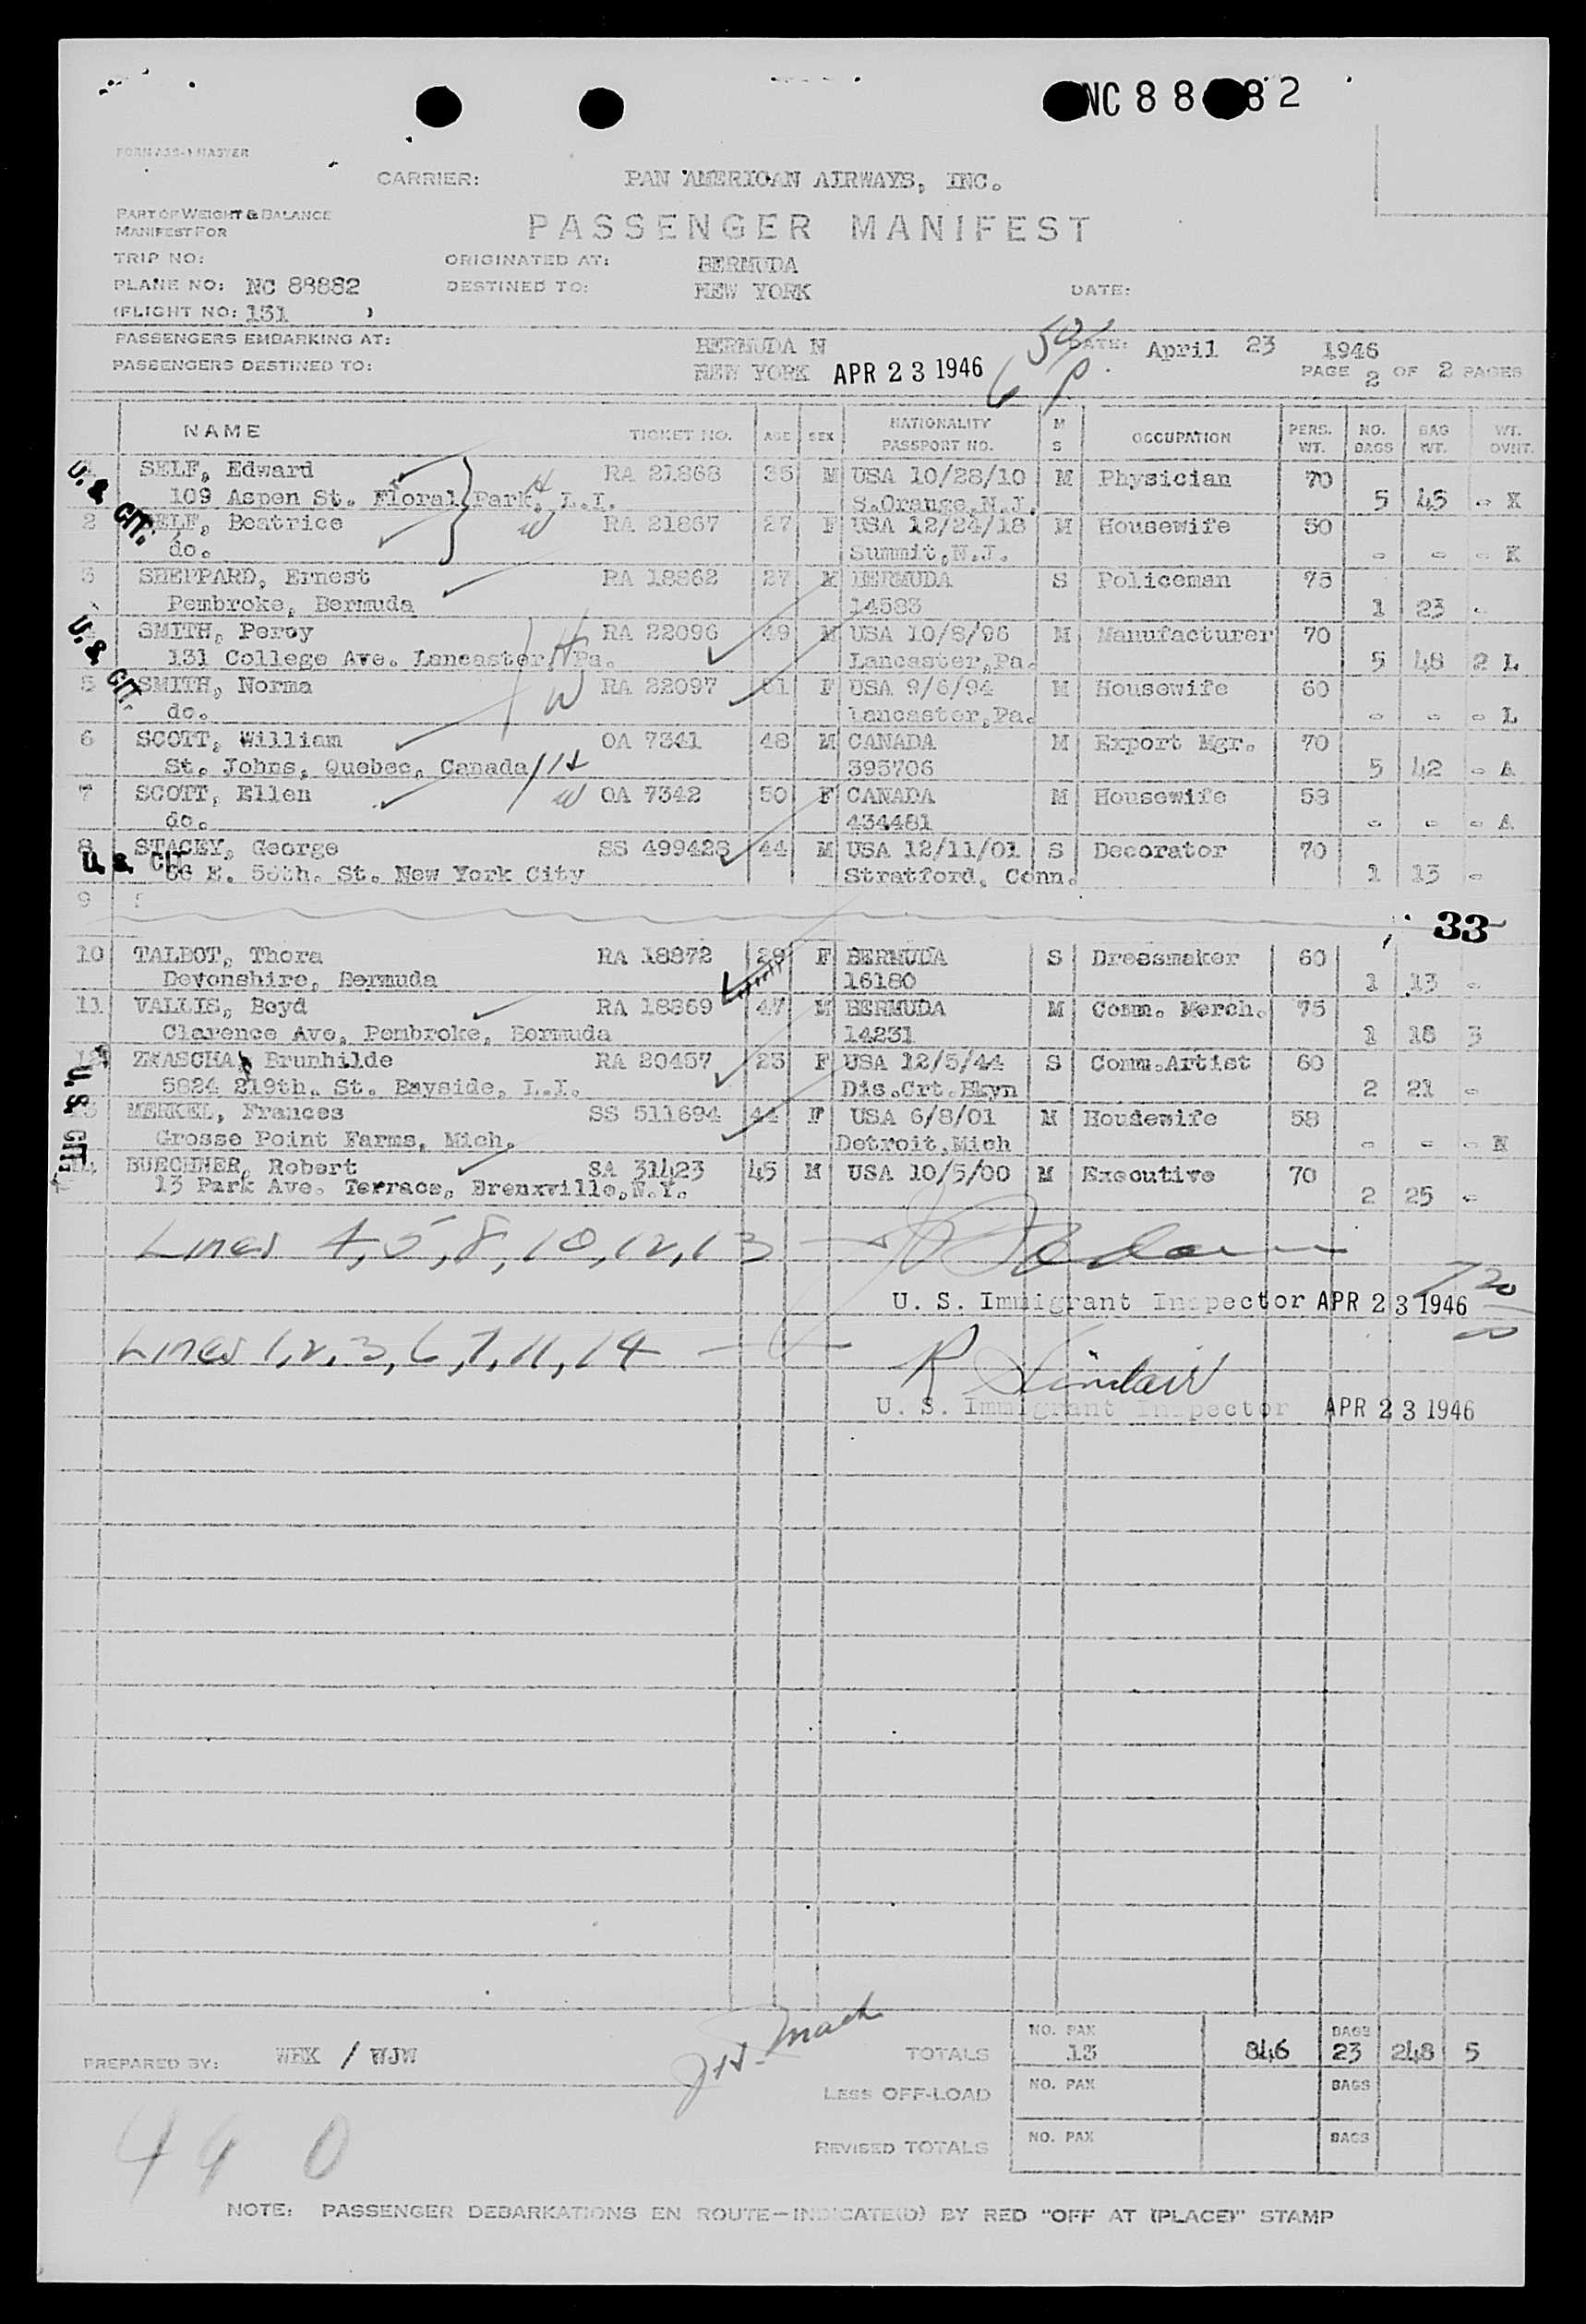 NC 8 8 82
FORM ASS-1 MASTER
CARRIER: PAN AMERICAN AIRWAYS, INC.
PART OF WEIGHT & BALANCE
MANIFEST FOR
PASSENGER MANIFEST
TRIP NO: ORIGINATED AT: BERMUDA
PLANE NO: NC 88882 DESTINED TO: NEW YORK DATE:
(FLIGHT NO: 131 )
PASSENGERS EMBARKING AT: BERMUDA N DATE: April 23 1946
PASSENGERS DESTINED TO: NEW YORK APR 23 1946 PAGE 2 OF 2 PAGES
NAME TICKET NO. AGE SEX NATIONALITY PASSPORT NO. M S OCCUPATION PERS. WT. NO. BAGS BAG WT. WT. OVNT.
SELF, Edward RA 21868 35 M USA 10/28/10 M Physician 70
109 Aspen St. Floral Park, L.I. H S.Orange,N.J. 5 45 - X
U. S. CIT.
2 SELF, Beatrice W RA 21867 27 F USA 12/24/18 M Housewife 50
do. Summit,N.J. - - - X
3 SHEPPARD, Ernest RA 18862 27 M BERMUDA S Policeman 75
Pembroke, Bermuda 14583 1 23 -
SMITH, Percy RA 22096 49 M USA 10/8/96 M Manufacturer 70
131 College Ave. Lancaster, Pa. H Lancaster,Pa. 5 48 2 L
U. S. CIT.
5 SMITH, Norma W RA 22097 51 F USA 9/6/94 M Housewife 60
do. Lancaster,Pa. - - - L
6 SCOTT, William OA 7341 48 M CANADA M Export Mgr. 70
St. Johns, Quebec, Canada H 393706 5 42 - A
7 SCOTT, Ellen W OA 7342 50 F CANADA M Housewife 58
do. 434481 - - - A
8 STACEY, George SS 499428 44 M USA 12/11/01 S Decorator 70
U. S. CIT. E. 56th. St. New York City Stratford, Conn. 1 13 -
9
33
10 TALBOT, Thora RA 18872 29 F BERMUDA S Dressmaker 60
Devonshire, Bermuda 16180 1 13 -
11 VALLIS, Boyd RA 18869 47 M BERMUDA M Comm. Merch. 75
Clarence Ave, Pembroke, Bermuda 14231 1 18 3
12 ZWASCHA, Brunhilde RA 20457 23 F USA 12/5/44 S Comm.Artist 60
5824 219th. St. Bayside, L.I. Dis.Crt.Bkyn 2 21 -
U. S. CIT.
13 MERKEL, Frances SS 511694 44 F USA 6/8/01 M Housewife 58
Grosse Point Farms, Mich. Detroit,Mich - - - N
14 BUECHNER, Robert SA 31423 45 M USA 10/5/00 M Executive 70
13 Park Ave. Terrace, Bronxville,N.Y. 2 25 -
Lines 4,5,8,10,12,13
U. S. Immigrant Inspector APR 23 1946
Lines 1,2,3,6,7,11,14 R Sinclair
U. S. Immigrant Inspector APR 23 1946
PREPARED BY: WEK / WJW
TOTALS NO. PAX 13 846 BAGS 23 248 5
LESS OFF-LOAD NO. PAX BAGS
REVISED TOTALS NO. PAX BAGS
NOTE: PASSENGER DEBARKATIONS EN ROUTE—INDICATE(D) BY RED "OFF AT (PLACE)" STAMP